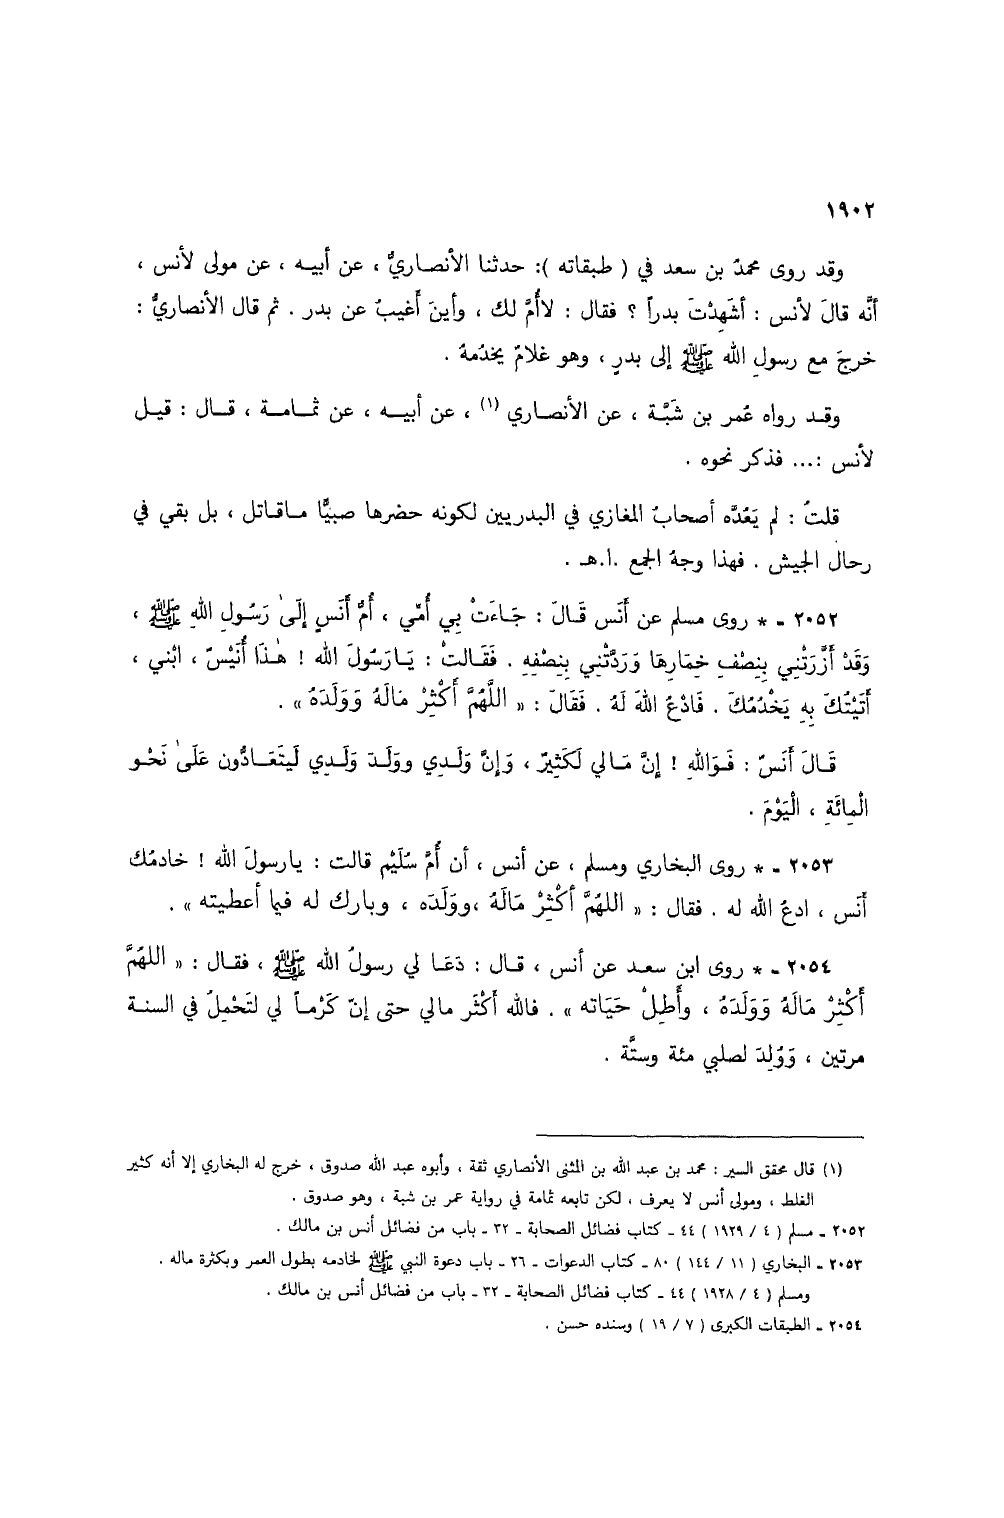 ١٩٠٢
وقد روى محمدُ بن سعد في ( طبقاته ): حدثنا الأنصاريُّ ، عن أبيه ، عن مولى لأنس ،
أنَّه قالَ لأنس : أشَهِدْتَ بدراً ؟ فقال : لاأُمَّ لك ، وأينَ أَغيبُ عن بدر . ثم قال الأنصاريُّ :
خرجَ مع رسولِ الله ﷺ إلى بدرٍ ، وهو غلامٌ يخدُمهُ .
وقد رواه عُمر بن شَبَّة ، عن الأنصاري (١) ، عن أبيه ، عن ثمامة ، قال : قيل
لأنس :... فذكر نحوه .
قلتُ : لم يَعُدَّه أصحابُ المغازي في البدريين لكونه حضرها صبيًّا ماقاتل ، بل بقي في
رحال الجيش . فهذا وجهُ الجمع .ا.هـ .
٢٠٥٢ - * روى مسلم عن أَنَس قَالَ : جَاءَتْ بِي أُمِّي ، أُمُّ أَنَسٍ إِلَىٰ رَسُولِ اللهِ ﷺ ،
وَقَدْ أَزَّرَتْنِي بِنِصْفِ خِمَارِهَا وَرَدَّتْنِي بِنِصْفِهِ . فَقَالتْ : يَارَسُولَ الله ! هٰذَا أُنَيْسٌ ، ابْني ،
أَتَيْتُكَ بِهِ يَخْدُمُكَ . فَادْعُ اللهَ لَهُ . فَقَالَ : « اللَّهُمَّ أَكْثِرْ مَالَهُ وَوَلَدَهُ » .
قَالَ أَنَسٌ : فَوَاللهِ ! إِنَّ مَالي لَكَثِيرٌ ، وَإِنَّ وَلَدِي ووَلَدَ وَلَدِي لَيتَعَادُّون عَلَىٰ نَحْوِ
الْمِائَةِ ، الْيَوْمَ .
٢٠٥٣ - * روى البخاري ومسلم ، عن أنس ، أن أُمَّ سُلَيْم قالت : يارسولَ الله ! خادمُك
أنَس ، ادعُ الله له . فقال : « اللهُمَّ أكْثِرْ مَالَهُ ،ووَلَدَه ، وبارك له فيما أعطيته » .
٢٠٥٤ - * روى ابن سعد عن أنس ، قال : دَعَا لي رسولُ الله ﷺ ، فقال : « اللهُمَّ
أَكْثِرْ مَالَهُ وَوَلَدَهُ ، وأَطِلْ حَيَاته » . فالله أَكْثَر مالي حتى إنّ كَرْماً لي لتَحْمِلُ في السنة
مرتين ، وَوُلِدَ لصلبي مئة وستَّة .
(١) قال محقق السير : محمد بن عبد الله بن المثنى الأنصاري ثقة ، وأبوه عبد الله صدوق ، خرج له البخاري إلا أنه كثير
الغلط ، ومولى أنس لا يعرف ، لكن تابعه ثمامة في رواية عمر بن شبة ، وهو صدوق .
٢٠٥٢ - مسلم ( ٤ / ١٩٢٩ ) ٤٤ - كتاب فضائل الصحابة - ٣٢ - باب من فضائل أنس بن مالك .
٢٠٥٣ - البخاري ( ١١ / ١٤٤ ) ٨٠ - كتاب الدعوات - ٢٦ - باب دعوة النبي ﷺ لخادمه بطول العمر وبكثرة ماله .
ومسلم ( ٤ / ١٩٢٨ ) ٤٤ - كتاب فضائل الصحابة - ٣٢ - باب من فضائل أنس بن مالك .
٢٠٥٤ - الطبقات الكبرى ( ٧ / ١٩ ) وسنده حسن .